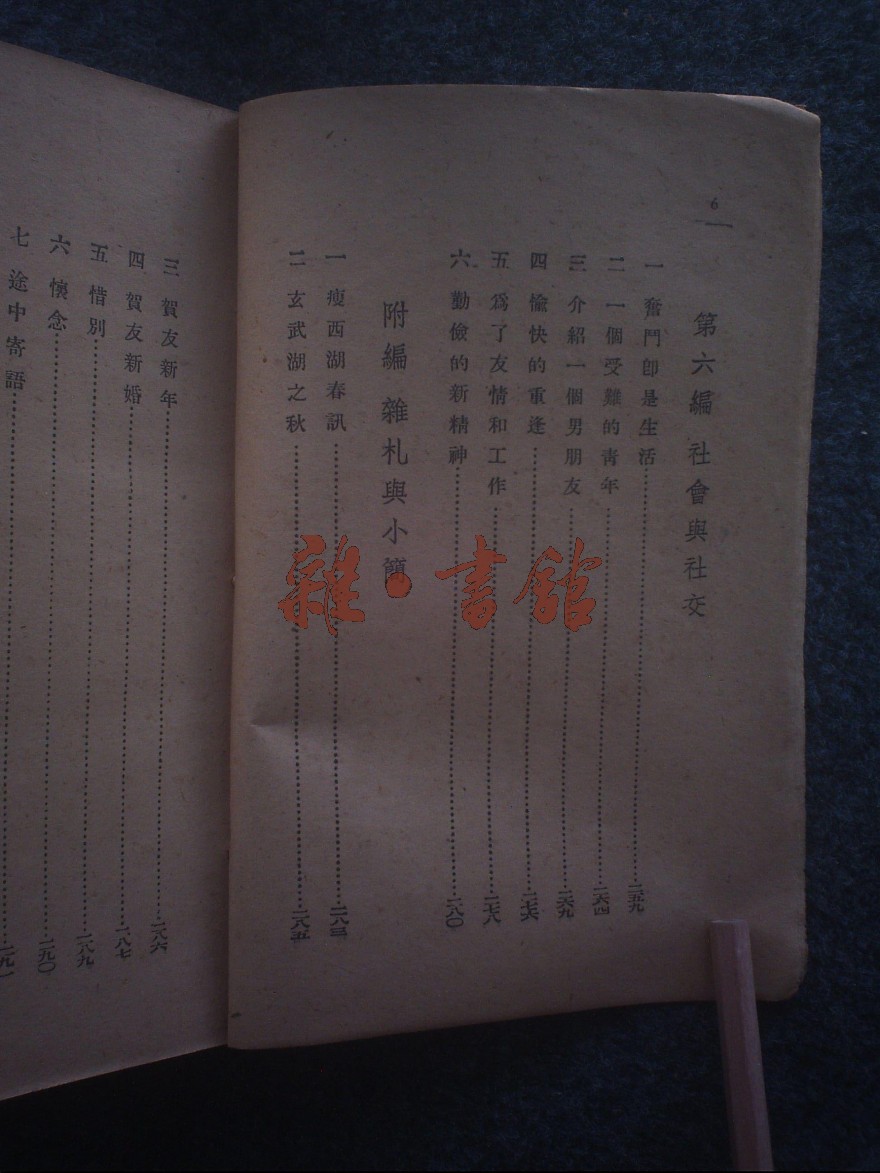 6
第六編 社會與社交
一 奮鬥即是生活 二五九
二 一個受難的青年 二六四
三 介紹一個男朋友 二六九
四 愉快的重逢 二七六
五 爲了友情和工作 二七八
六 勤儉的新精神 二八〇
附編 雜札與小簡
一 瘦西湖春訊 二八三
二 玄武湖之秋 二八五
三 賀友新年 二八六
四 賀友新婚 二八七
五 惜別 二八九
六 懷念 二九〇
七 途中寄語 二九一
雜·書館